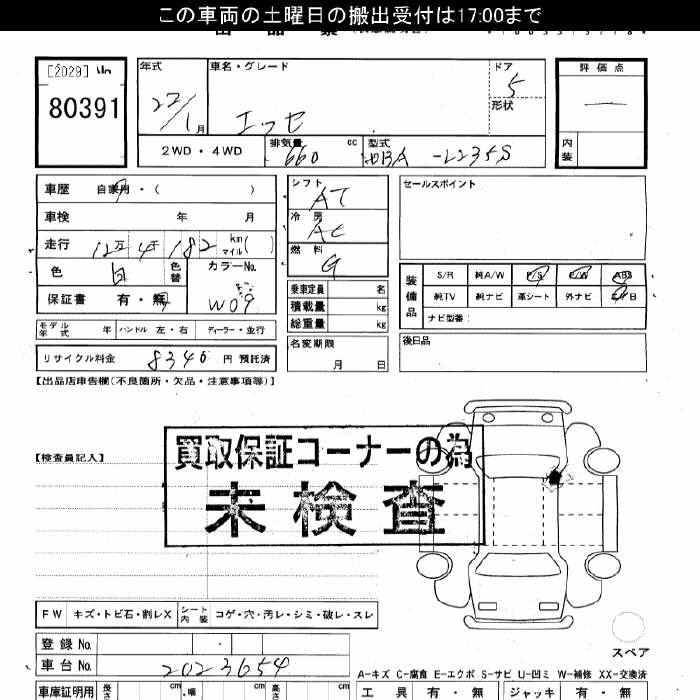 この車両の土曜日の搬出受付は17:00まで
[2029]
80391
年式 22/1月
車名・グレード エッセ
ドア 5
形状
評価点 —
内装
2WD・4WD
排気量 660 cc
型式 -L235S
車歴 自家用・( )
車検 年 月
走行 12万4千182 km マイル( )
色 白 色替
カラーNo. W09
保証書 有・無
シフト AT
冷房 AC
燃料 G
乗車定員 名
積載量 kg
総重量 kg
セールスポイント
装備品
S/R 純A/W P/S P/W ABS
純TV 純ナビ 革シート 外ナビ エアB
ナビ型番:
モデル年式 年 ハンドル 左・右 ディーラー・並行
名変期限 月 日
後日品
リサイクル料金 8340 円 預託済
【出品店申告欄(不良箇所・欠品・注意事項等)】
【検査員記入】
買取保証コーナーの為
未検査
FW キズ・トビ石・割レX シート内装 コゲ・穴・汚レ・シミ・破レ・スレ
登録No.
車台No. 2023654
スペア
A-キズ C-腐食 E-エクボ S-サビ U-凹ミ W-補修 XX-交換済
車庫証明用 長さ cm 幅 cm 高さ cm
工具 有・無 ジャッキ 有・無